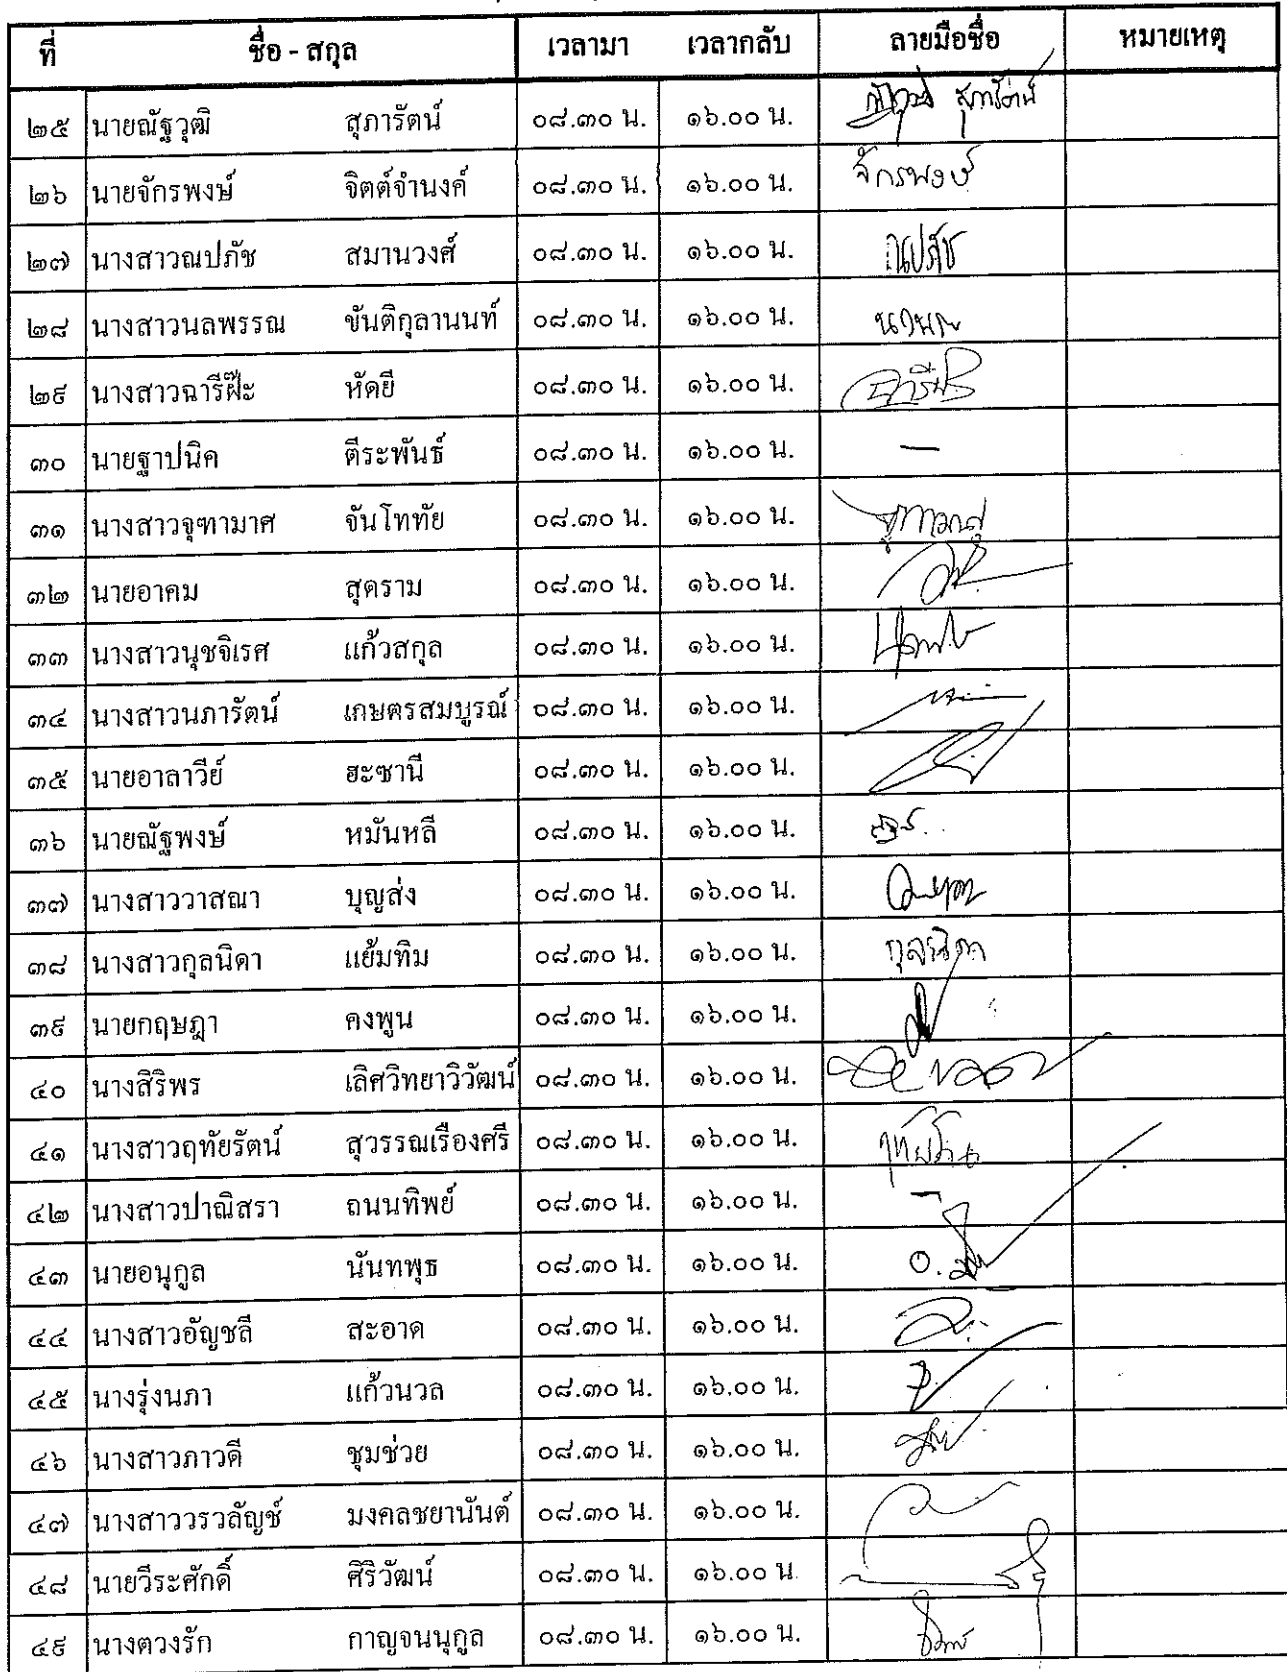 ที่ ชื่อ - สกุล เวลามา เวลากลับ ลายมือชื่อ หมายเหตุ
๒๕ นายณัฐวุฒิ สุภารัตน์ ๐๘.๓๐ น. ๑๖.๐๐ น. ณัฐวุฒิ สุภารัตน์
๒๖ นายจักรพงษ์ จิตต์จำนงค์ ๐๘.๓๐ น. ๑๖.๐๐ น. จักรพงษ์
๒๗ นางสาวณปภัช สมานวงศ์ ๐๘.๓๐ น. ๑๖.๐๐ น. ณปภัช
๒๘ นางสาวนลพรรณ ขันติกุลานนท์ ๐๘.๓๐ น. ๑๖.๐๐ น.
๒๙ นางสาวฉารีฝ๊ะ หัดยี ๐๘.๓๐ น. ๑๖.๐๐ น.
๓๐ นายฐาปนิค ตีระพันธ์ ๐๘.๓๐ น. ๑๖.๐๐ น. —
๓๑ นางสาวจุฑามาศ จันโททัย ๐๘.๓๐ น. ๑๖.๐๐ น.
๓๒ นายอาคม สุดราม ๐๘.๓๐ น. ๑๖.๐๐ น.
๓๓ นางสาวนุชจิเรศ แก้วสกุล ๐๘.๓๐ น. ๑๖.๐๐ น.
๓๔ นางสาวนภารัตน์ เกษตรสมบูรณ์ ๐๘.๓๐ น. ๑๖.๐๐ น.
๓๕ นายอาลาวีย์ ฮะซานี ๐๘.๓๐ น. ๑๖.๐๐ น.
๓๖ นายณัฐพงษ์ หมันหลี ๐๘.๓๐ น. ๑๖.๐๐ น.
๓๗ นางสาววาสณา บุญส่ง ๐๘.๓๐ น. ๑๖.๐๐ น.
๓๘ นางสาวกุลนิดา แย้มทิม ๐๘.๓๐ น. ๑๖.๐๐ น. กุลนิดา
๓๙ นายกฤษฎา คงพูน ๐๘.๓๐ น. ๑๖.๐๐ น.
๔๐ นางสิริพร เลิศวิทยาวิวัฒน์ ๐๘.๓๐ น. ๑๖.๐๐ น.
๔๑ นางสาวฤทัยรัตน์ สุวรรณเรืองศรี ๐๘.๓๐ น. ๑๖.๐๐ น.
๔๒ นางสาวปาณิสรา ถนนทิพย์ ๐๘.๓๐ น. ๑๖.๐๐ น. —
๔๓ นายอนุกูล นันทพุธ ๐๘.๓๐ น. ๑๖.๐๐ น.
๔๔ นางสาวอัญชลี สะอาด ๐๘.๓๐ น. ๑๖.๐๐ น.
๔๕ นางรุ่งนภา แก้วนวล ๐๘.๓๐ น. ๑๖.๐๐ น.
๔๖ นางสาวภาวดี ชุมช่วย ๐๘.๓๐ น. ๑๖.๐๐ น.
๔๗ นางสาววรวลัญช์ มงคลชยานันต์ ๐๘.๓๐ น. ๑๖.๐๐ น.
๔๘ นายวีระศักดิ์ ศิริวัฒน์ ๐๘.๓๐ น. ๑๖.๐๐ น
๔๙ นางตวงรัก กาญจนนุกูล ๐๘.๓๐ น. ๑๖.๐๐ น.